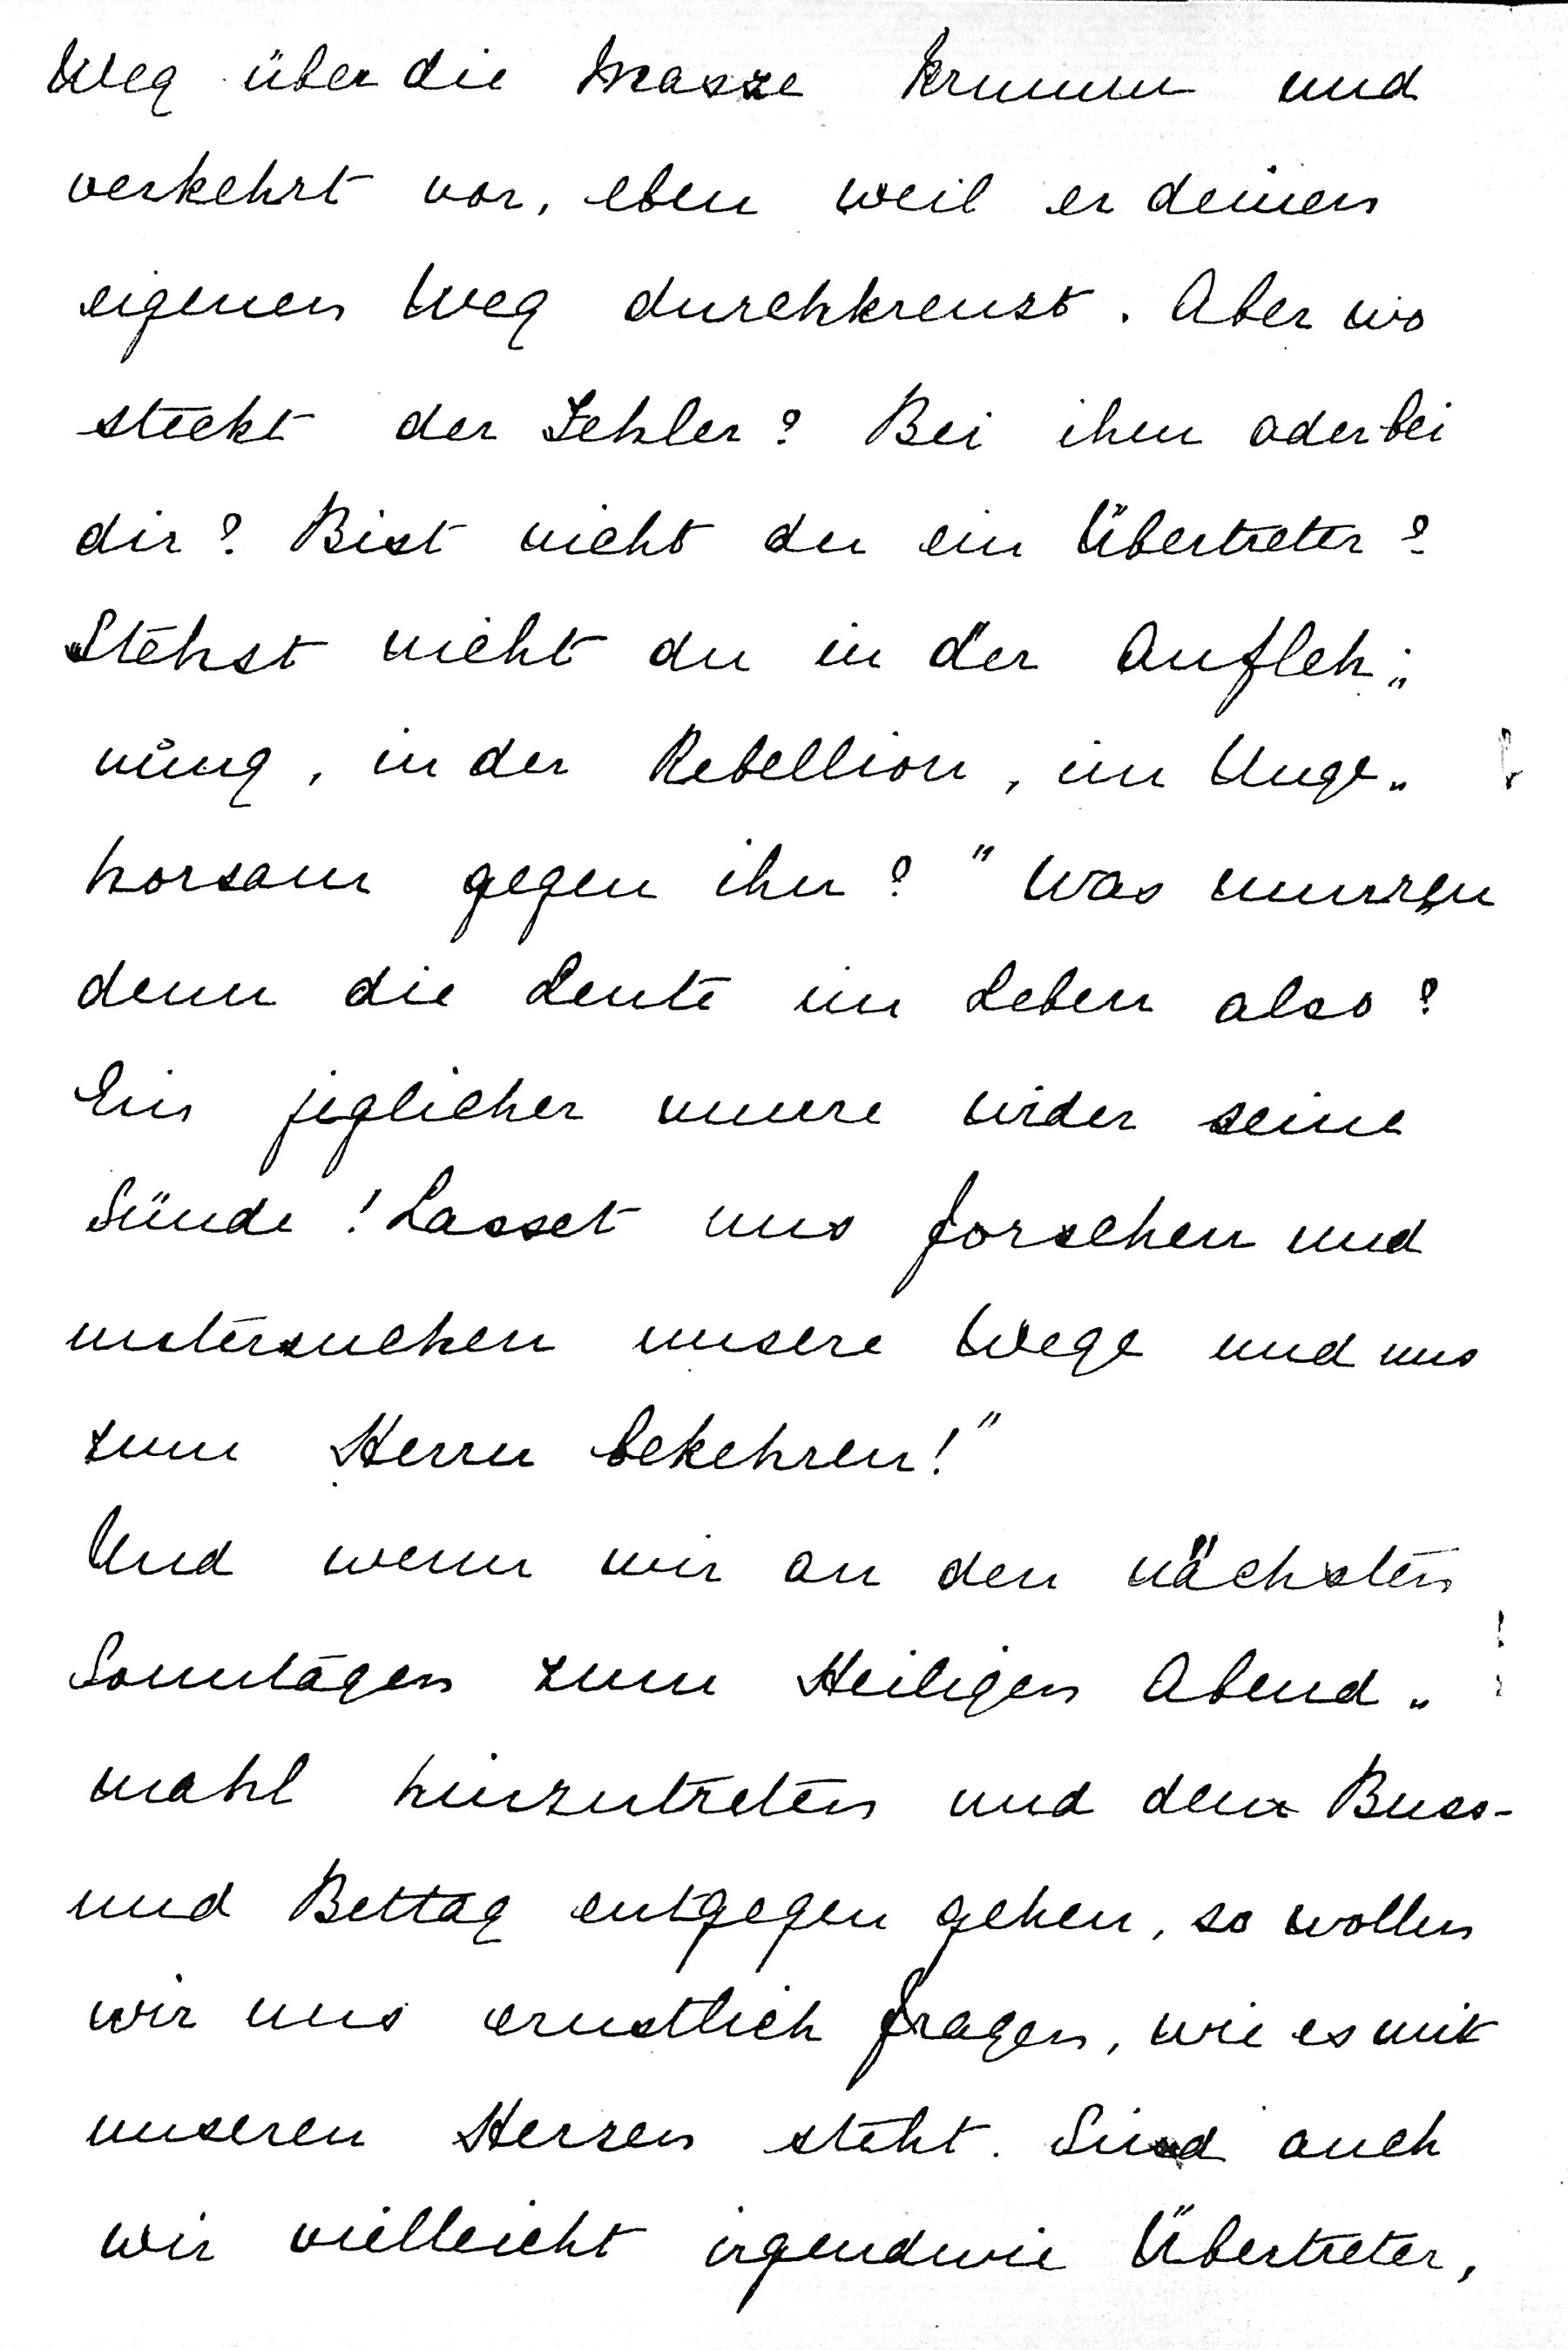 Weg über die Masze krumm und
verkehrt vor, eben weil er deinen
eigenen Weg durchkreuzt. Aber wo
steckt der Fehler? Bei ihm oder bei
dir? Bist nicht du ein Übertreter?
Stehst nicht du in der Aufleh„
nung, in der Rebellion, im Unge„
horsam gegen ihn? "Was murren
denn die Leute im Leben also?
Ein jeglicher murre wider seine
Sünde! Lasset uns forschen und
untersuchen unsere Wege und uns
zum Herrn bekehren!"
Und wenn wir an den nächsten
Sonntagen zum Heiligen Abend„
mahl hinzutreten und dem Buss-
und Bettag entgegen gehen, so wollen
wir uns ernstlich fragen, wie es mit
unseren Herzen steht. Sind auch
wir vielleicht irgendwie Übertreter,